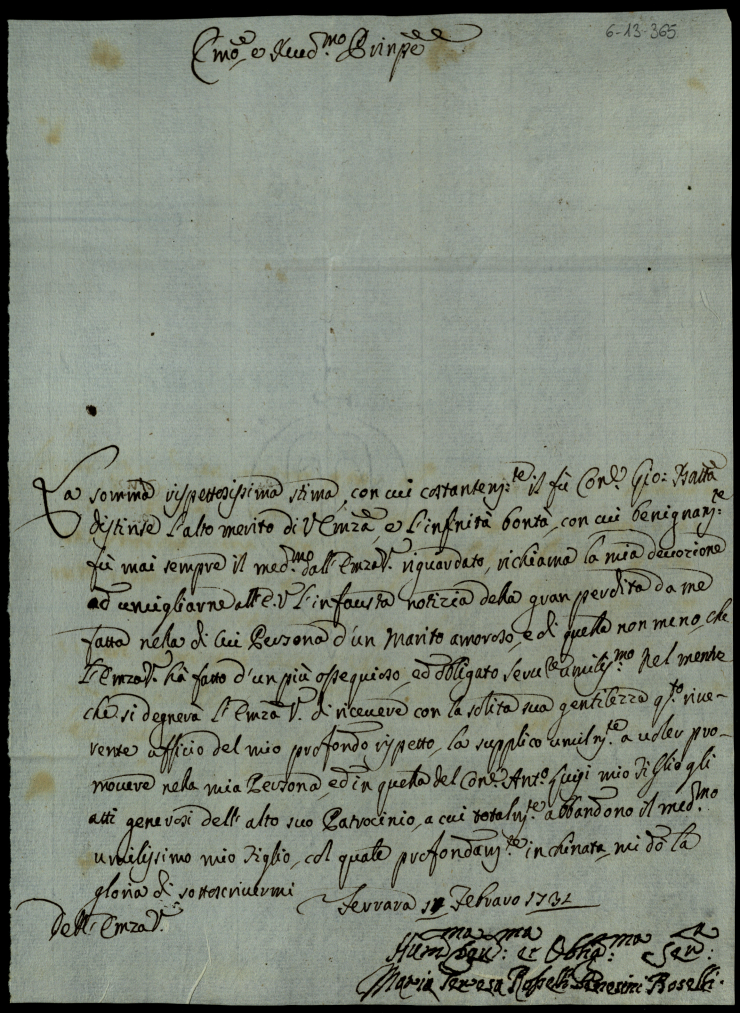 6-13-365
Em.o e Reud.mo Prinpe
La somma rispettosissima stima, con cui costantem.te il fù Con.e Gio: Batta
distinse l'alto merito di V. Emza, e l'infinità bontà, con cui benignam.te
fù mai sempre il med.mo dall'Emza V. riguardato, richiama la mia devozione
ad umigliarne all'E. V. l'infausta notizia della gran perdita da me
fatta nella di lui Persona d'un Marito amoroso, e di quella non meno, che
l'Emza V. hà fatto d'un più ossequioso, ed obligato umilis.mo Nel mentre
che si degnerà l'Emza V. di ricevere con la solita sua gentilezza q.to rive-
rente afficio del mio profondo rispetto, la supplico umilm.te a voler pro-
movere nella mia Persona, ed in quella del Con.e Ant.o Luigi mio Figlio gli
atti generosi dell'alto suo Patrocinio, a cui totalm.te abbandono il med.mo
umilissimo mio Figlio, col quale profondam.te inchinata, mi dò la
gloria di sottoscrivermi
Ferrara Febraro 1731
Dell'Emza V.
Hum.ma et Oblig.ma Ser.a
Maria Teresa Roselli